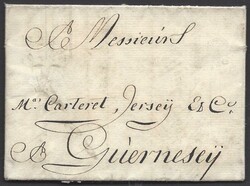 A Messieurs
Mrs. Carteret, Jersey & Co.
A Guernesey